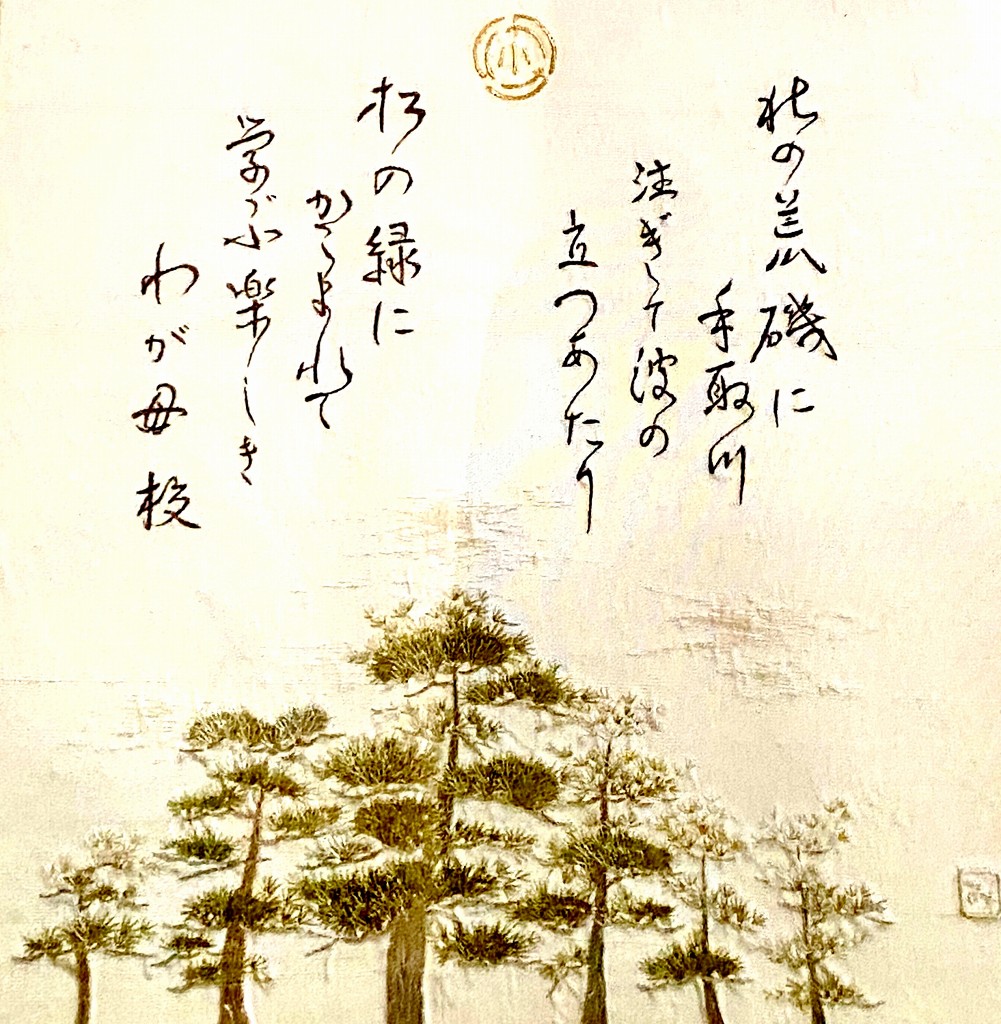 小
北の荒磯に
手取川
注ぎて波の
立つあたり
松の緑に
かこまれて
学ぶ楽しき
わが母校